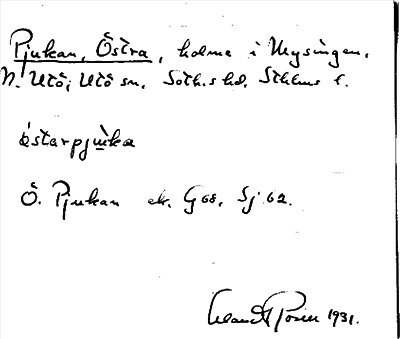 Pjukan, Östra, holme i Mysingen,
N. Utö, Utö sn, Soth.s hd, Sthlms l.
östarpjuka
Ö. Pjukan ek. G 68, Sj 62.
Rosén 1931.